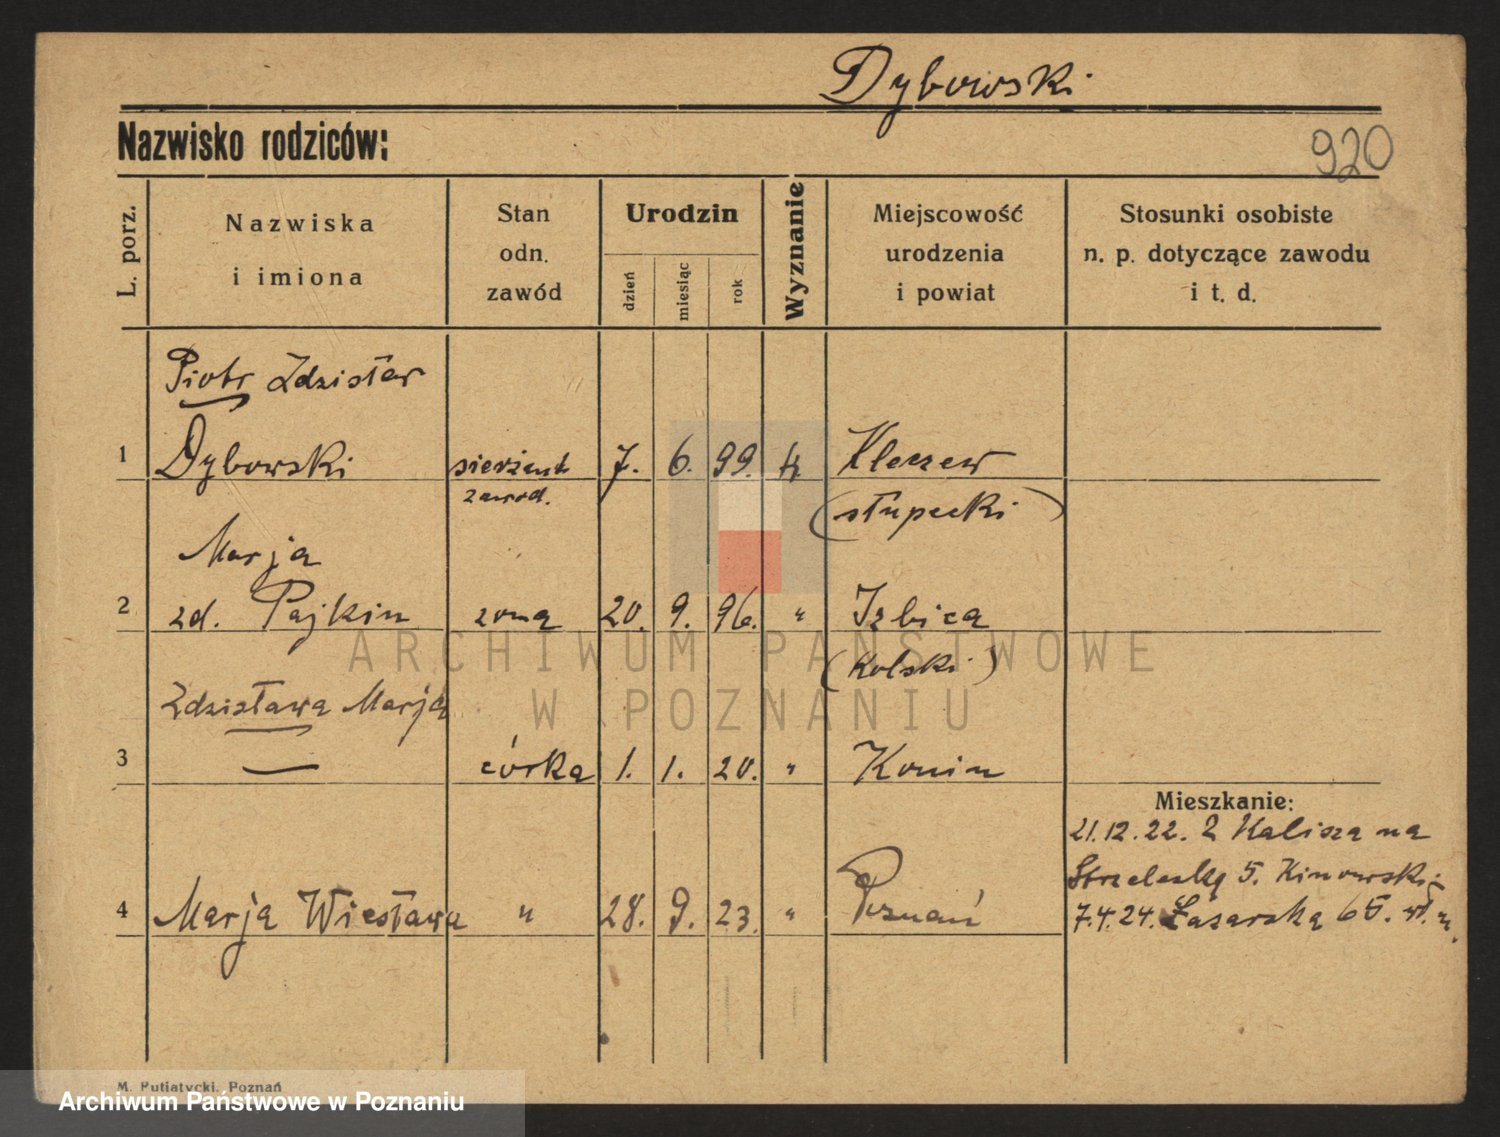 Dybowski
Nazwisko rodziców:
920
L. porz.
Nazwiska
i imiona
Stan
odn.
zawód
Urodzin
dzień
miesiąc
rok
Wyznanie
Miejscowość
urodzenia
i powiat
Stosunki osobiste
n. p. dotyczące zawodu
i t. d.
Piotr Zdzisław
1 Dybowski sierżant 7. 6. 99. k Kleczew
zawod. (słupecki)
Marja
2 zd. Pajkin żona 20. 9. 96. " Izbica
(kolski)
Zdzisława Marja
3 — córka 1. 1. 20. " Konin
Mieszkanie:
21.12.22. Z Kalisza na
Strzelecką 5.
4 Marja Wiesława " 28. 9. 23. " Poznań
7.4.24. Łazarską
M. Putiatycki, Poznań
ARCHIWUM PAŃSTWOWE
W POZNANIU
Archiwum Państwowe w Poznaniu